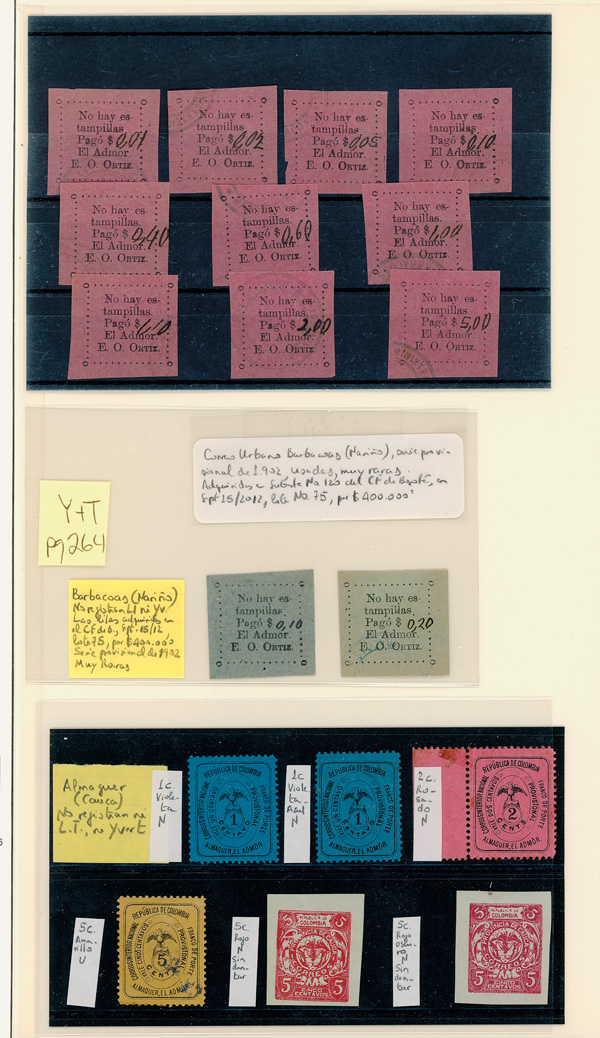 No hay es-
tampillas.
Pagó $ 0,01
El Admor.
E. O. ORTIZ.
No hay es-
tampillas.
Pagó $ 0,02
El Admor.
E. O. ORTIZ.
No hay es-
tampillas.
Pagó $ 0,05
El Admor.
E. O. ORTIZ.
No hay es-
tampillas.
Pagó $ 0,10
El Admor.
E. O. ORTIZ.
No hay es-
tampillas.
Pagó $ 0,40
El Admor.
E. O. ORTIZ.
No hay es-
tampillas.
Pagó $ 0,60
El Admor.
E. O. ORTIZ.
No hay es-
tampillas.
Pagó $ 1,00
El Admor.
E. O. ORTIZ.
No hay es-
tampillas.
Pagó $ 1,10
El Admor.
E. O. ORTIZ.
No hay es-
tampillas.
Pagó $ 2,00
El Admor.
E. O. ORTIZ.
No hay es-
tampillas.
Pagó $ 5,00
El Admor.
E. O. ORTIZ.
Correo Urbano Barbacoas (Nariño), serie provi-
sional de 1.902 usadas, muy raras.
Adquiridos en Subasta No 120 del CF de Bogotá, en
Spt 15/2012, lote No. 75, por $400.000
Y+T
pg 264
Barbacoas (Nariño)
No registran LT ni Yv.
Las lilas adquiridas en
el CF de B., Spt. 15/12
lote 75, por $400.000
Serie provisional de 1902
Muy Raras
No hay es-
tampillas.
Pagó $ 0,10
El Admor.
E. O. ORTIZ.
No hay es-
tampillas.
Pagó $ 0,20
El Admor.
E. O. ORTIZ.
Almaguer
(Cauca)
No registran ni
L.T., ni Yvert
1c
Viole-
ta
N
REPÚBLICA DE COLOMBIA
CORREOS INTERIOR NACIONAL
FRANCO DE PORTE
PROVISIONAL
1
CENTAVO
ALMAGUER, EL ADMOR.
1c
Viole-
ta-
Azul
N
REPÚBLICA DE COLOMBIA
CORREOS INTERIOR NACIONAL
FRANCO DE PORTE
PROVISIONAL
1
CENTAVO
ALMAGUER, EL ADMOR.
2c.
Ro-
sa-
do
N
REPÚBLICA DE COLOMBIA
CORREOS INTERIOR NACIONAL
FRANCO DE PORTE
PROVISIONAL
DOS CENTAVOS
2
CENTS
ALMAGUER, EL ADMOR.
5c.
Ama-
rillo
U
REPÚBLICA DE COLOMBIA
CORREOS INTERIOR NACIONAL
FRANCO DE PORTE
PROVISIONAL
CINCO CENTAVOS
5
CENTS
ALMAGUER, EL ADMOR.
5c.
Rojo
N
Sin
den-
tar
5 REPUBLICA DE COLOMBIA 5
CORREO
5 5
CINCO
CENTAVOS
5c.
Rojo
oscu-
ro
N
Sin
den-
tar
5 REPUBLICA DE COLOMBIA 5
CORREO
5 5
CINCO
CENTAVOS